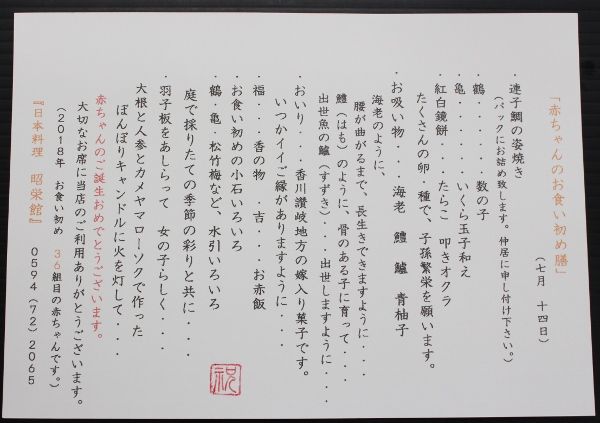 「赤ちゃんのお食い初め膳」
(七月 十四日)
・連子鯛の姿焼き
(パックにお詰め致します。仲居に申し付け下さい。)
・鶴・・・・・数の子
・亀・・・・・いくら玉子和え
・紅白鏡餅・・・たらこ 叩きオクラ
たくさんの卵・種で、子孫繁栄を願います。
・お吸い物・・・海老 鱧 鱸 青柚子
海老のように、
腰が曲がるまで、長生きできますように・・・
鱧(はも)のように、骨のある子に育って・・・
出世魚の鱸(すずき)・・・出世しますように・・・
・おいり・・・香川讃岐地方の嫁入り菓子です。
いつかイイご縁がありますように・・・
・福・・・香の物 ・吉・・・お赤飯
・お食い初めの小石いろいろ
・鶴・亀・松竹梅など、水引いろいろ
庭で採りたての季節の彩りと共に・・・
・羽子板をあしらって 女の子らしく・・・
大根と人参とカメヤマローソクで作った
ぼんぼりキャンドルに火を灯して・・・
赤ちゃんのご誕生おめでとうございます。
大切なお席に当店のご利用ありがとうございます。
(2018年 お食い初め 36組目の赤ちゃんです。)
『日本料理 昭栄館』 0594(72)2065
祝